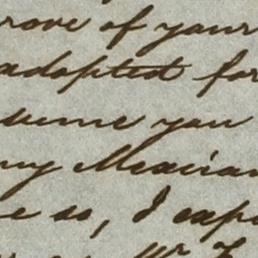 rove of your
adopted for
sume you
my Mexican
e so, I expe
Mr